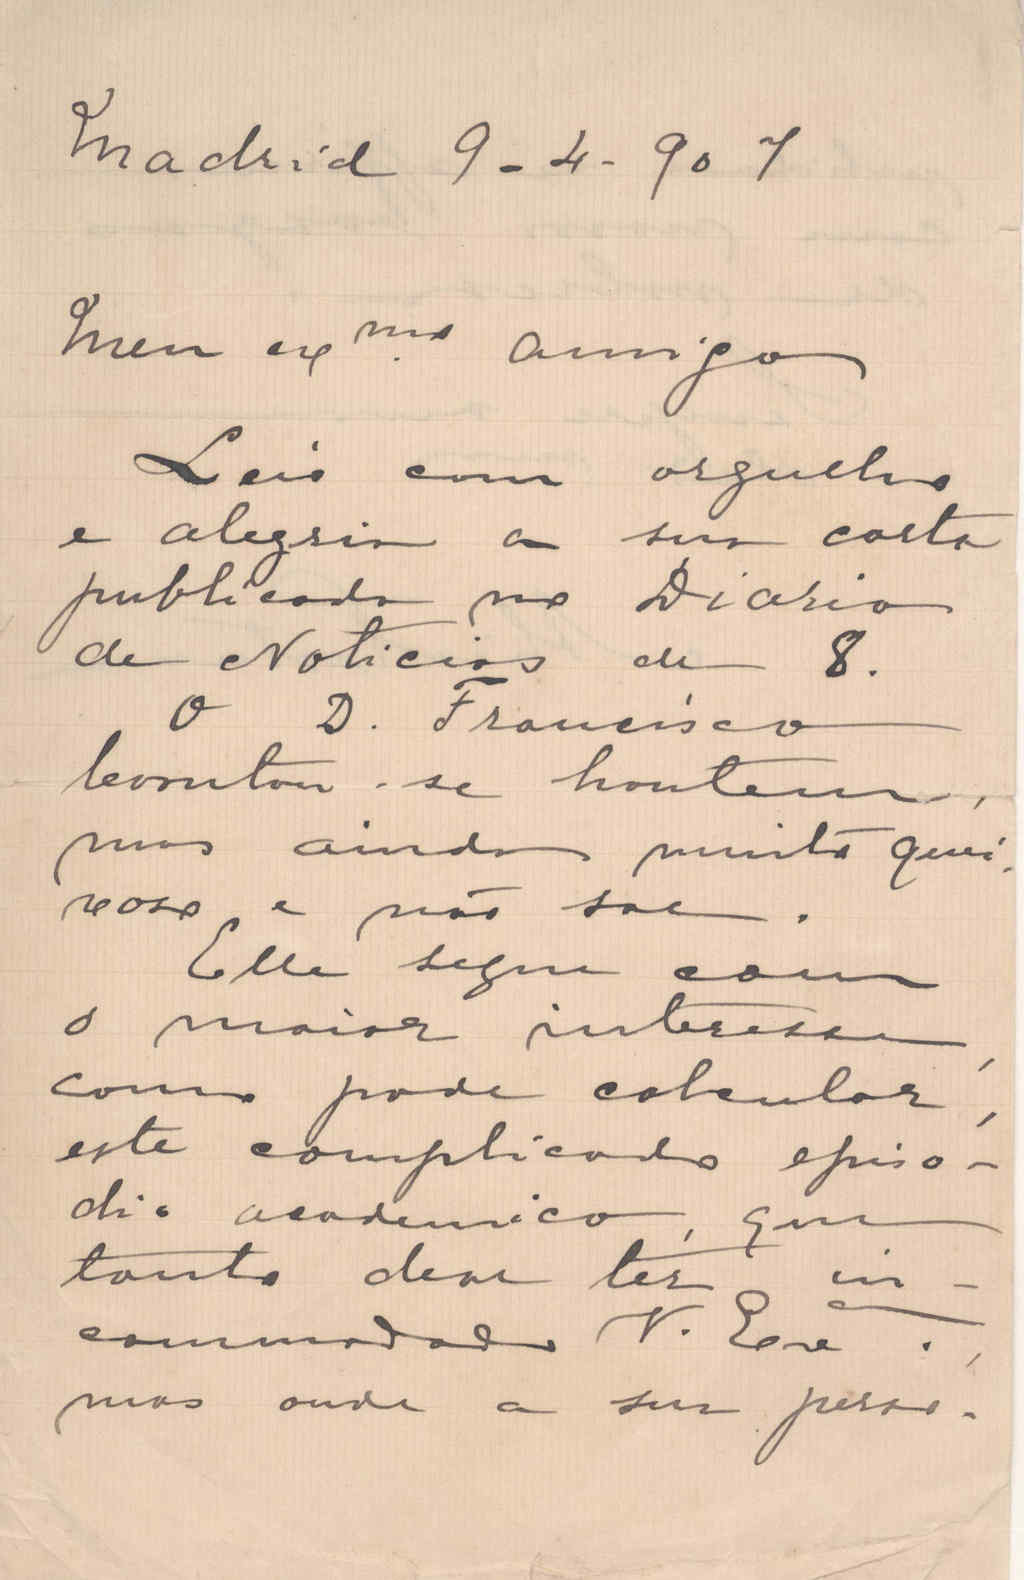 Madrid 9-4-907
Meu exmo amigo
Leio com orgulho
e alegria a sua carta
publicada no Diario
de Noticias de 8.
O D. Francisco
levantou-se hontem,
mas ainda muito quei-
xoso, e não sae.
Elle segue com
o maior interesse,
como pode calcular,
este complicado episo-
dio academico, que
tanto deve ter in-
commodado V. Exca.,
mas onde a sua perso-